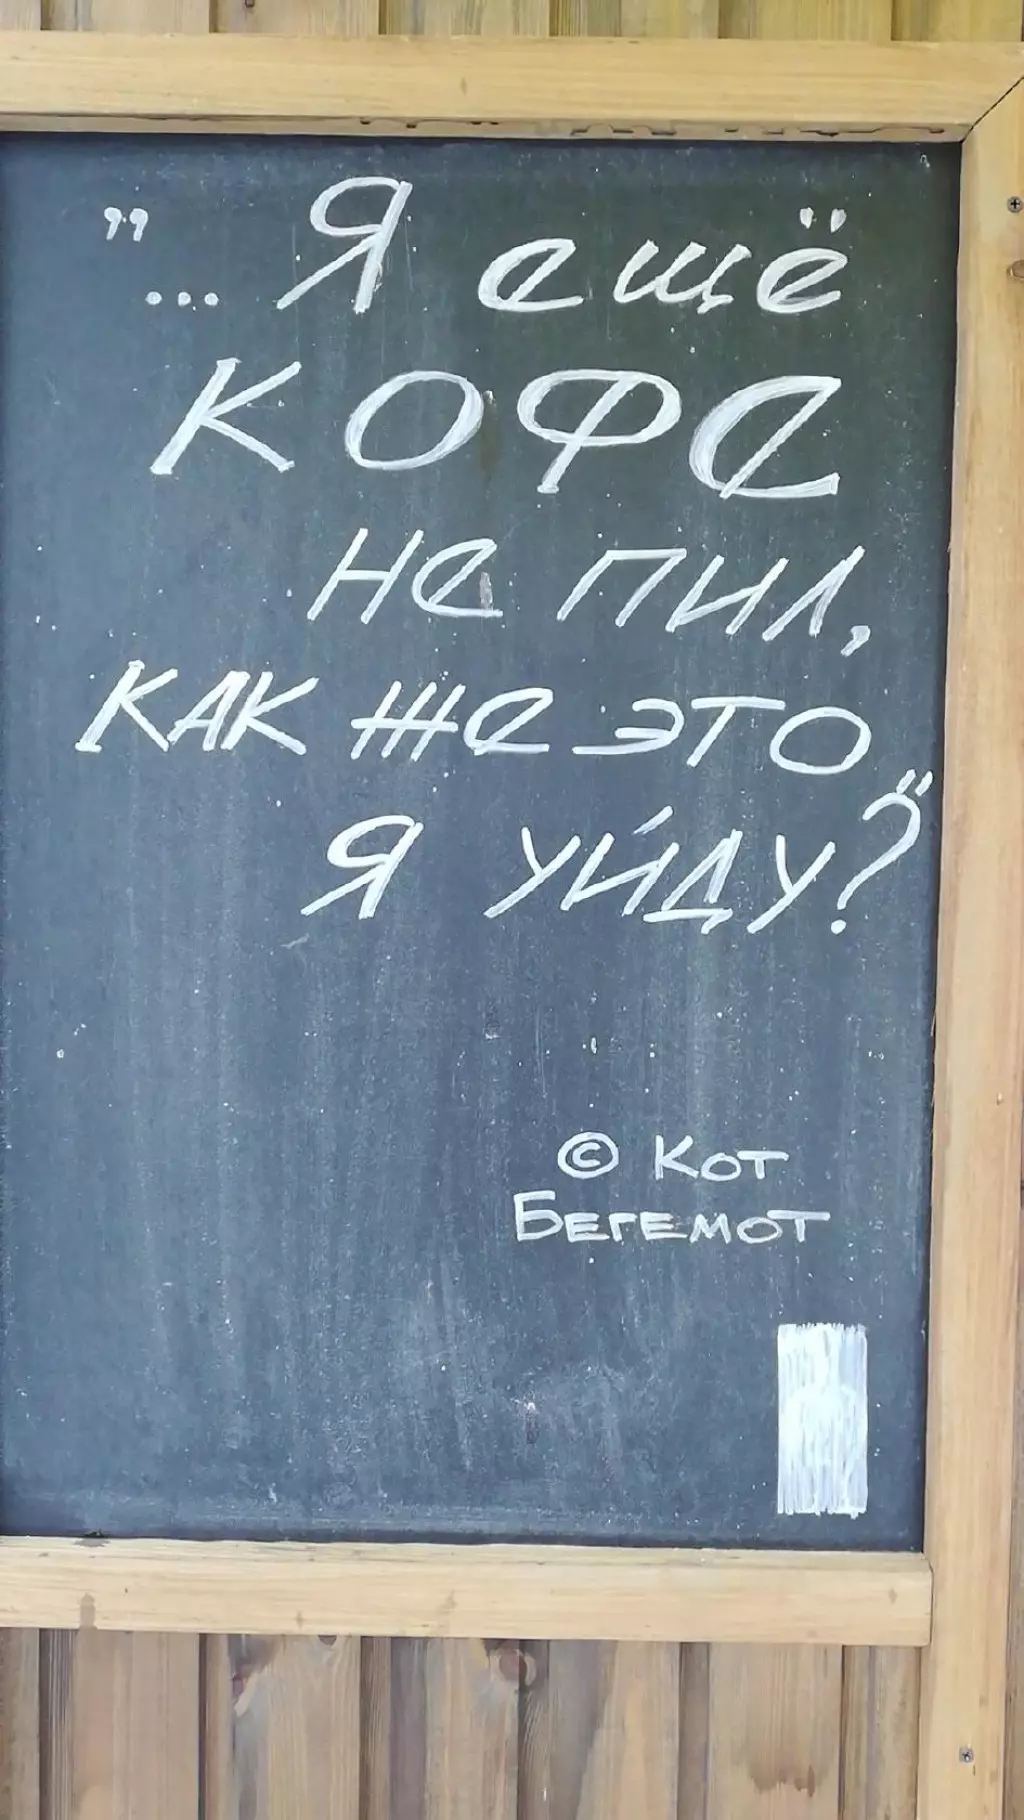 "... Я ещё
КОФЕ
не пил,
как же это
я уйду?"
© Кот
Бегемот